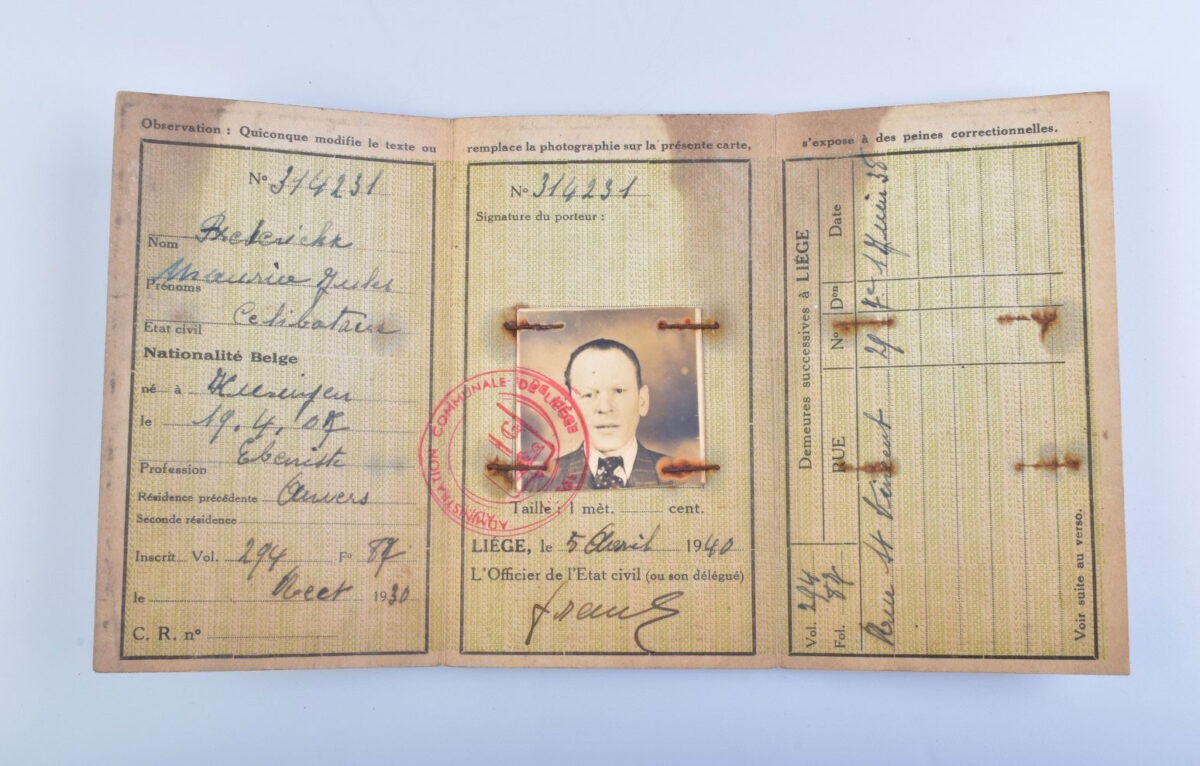 Observation : Quiconque modifie le texte ou remplace la photographie sur la présente carte, s'expose à des peines correctionnelles.
No 314231
Nom
Prénoms Maurice Jules
Etat civil Celibataire
Nationalité Belge
né à
le 19.4.08
Profession Ebeniste
Résidence précédente Anvers
Seconde résidence
Inscrit Vol. 294 Fo 87
le 1930
C. R. no
No 314231
Signature du porteur :
ADMINISTRATION COMMUNALE DE LIÉGE
Taille : 1 mèt. cent.
LIÉGE, le 5 Avril 1940
L'Officier de l'Etat civil (ou son délégué)
Demeures successives à LIÉGE
Vol. Fol. RUE No Don Date
294 87 Rue St Vincent 29 38
Voir suite au verso.